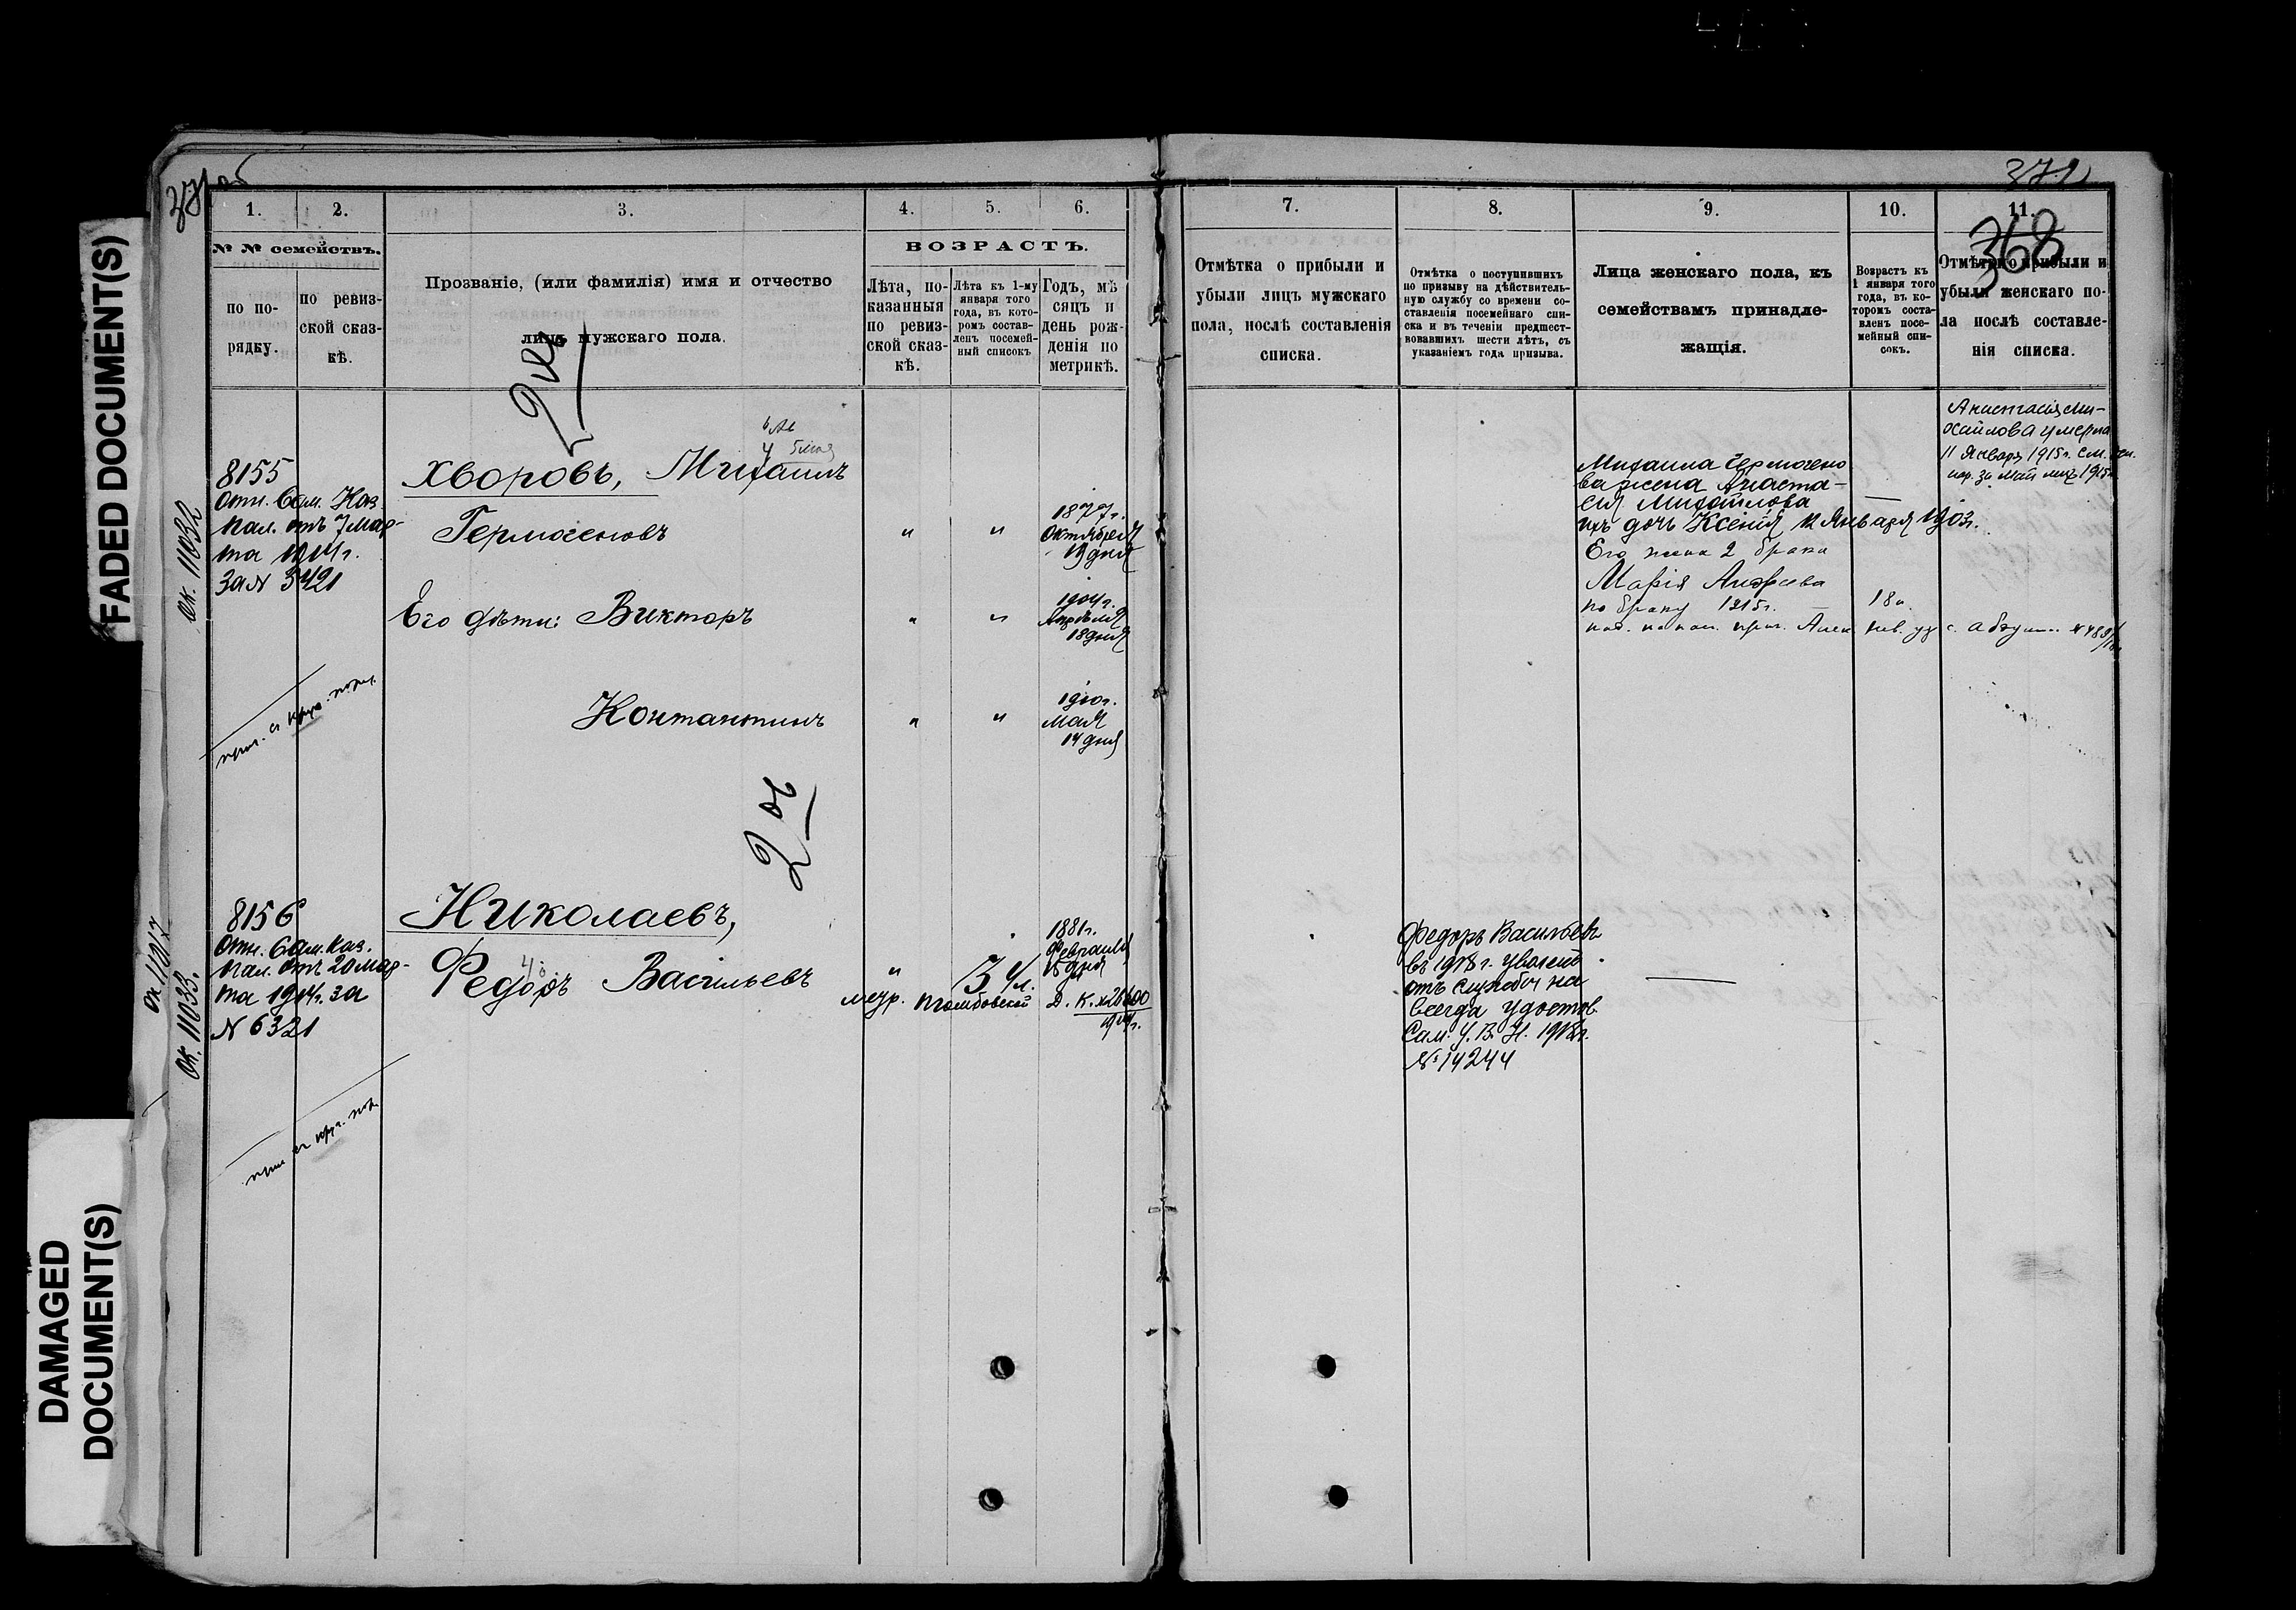 FADED DOCUMENT(S)
DAMAGED
DOCUMENT(S)
371 об
1.
2.
3.
4.
5.
6.
№ № семействъ.
по по-
рядку.
по ревиз-
ской сказ-
кѣ.
Прозваніе, (или фамилія) имя и отчество
лицъ мужскаго пола.
ВОЗРАСТЪ.
Лѣта, по-
казанныя
по ревиз-
ской сказ-
кѣ.
Лѣта къ 1-му
января того
года, въ кото-
ромъ состав-
ленъ посемей-
ный списокъ
Годъ, мѣ
сяцъ и
день рож-
денія по
метрикѣ.
ок. 11032
8155
Отн. Сам. Каз.
пал. отъ 7 мар-
та 1914 г.
за № 3421
Хворовъ, Михаилъ
Гермогеновъ
" "
1877 г.
Октября
19 дня
Его дѣти: Викторъ
" "
1904 г.
Апрѣля
18 дня
Контантинъ
" "
1910 г.
мая
14 дня
2
ок 11017
ок. 11033.
8156
Отн. Сам. Каз.
пал. отъ 20 мар-
та 1914 г. за
№ 6321
Николаевъ,
Федоръ Васильевъ
"
1881 г.
Февраля
Д. К. № 26600
1914 г.
372
368
7.
8.
9.
10.
11.
Отмѣтка о прибыли и
убыли лицъ мужскаго
пола, послѣ составленія
списка.
Отмѣтка о поступившихъ
по призыву на дѣйствитель-
ную службу со времени со-
ставленія посемейнаго спи-
ска и въ теченіи предшест-
вовавшихъ шести лѣтъ, съ
указаніемъ года призыва.
Лица женскаго пола, къ
семействамъ принадле-
жащія.
Возрастъ къ
1 января того
года, въ ко-
торомъ соста-
вленъ посе-
мейный спи-
сокъ.
Отмѣтка о прибыли и
убыли женскаго по-
ла послѣ составле-
нія списка.
Анастасія Ми-
хайлова умерла
11 Января 1915 г. см.
Михаила Гермогено
ва жена Анаста-
сія Михайлова —
ихъ дочь Ксенія 12 Января 1903 г.
Его жена 2 брака
Марія Андреева
по браку 1915 г. — 18 л.
Федоръ Васильевъ
въ 1918 г. уволенъ
отъ службы на
всегда удостов.
Сам. У. В. Н. 1918 г.
№ 14244
—